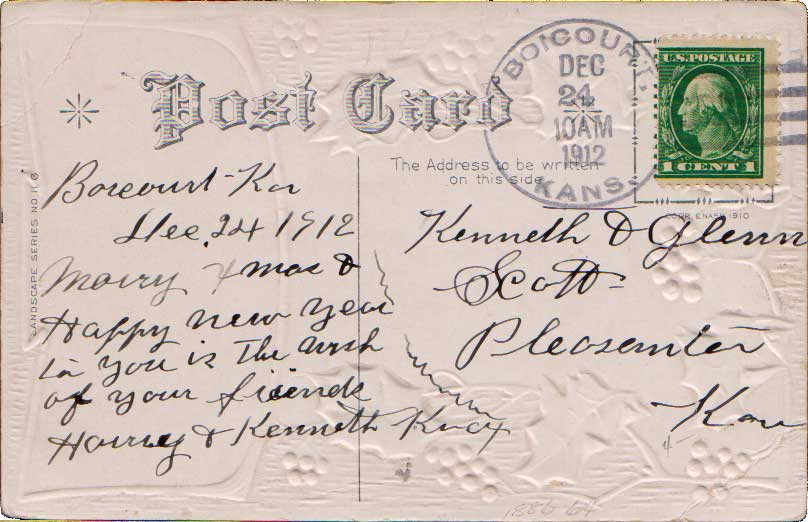 Post Card
BOICOURT,
DEC
24
10AM
1912
KANS.
U.S. POSTAGE
1 CENT 1
The Address to be written
on this side
COPR. E. NASH 1910
LANDSCAPE SERIES NO
Boicourt - Kan
Dec. 24 1912
Marry Xmas &
Happy new year
to you is The wish
of your friends
Harry & Kenneth
Kenneth & Glenn
Scott
Pleasenten
Kan
4